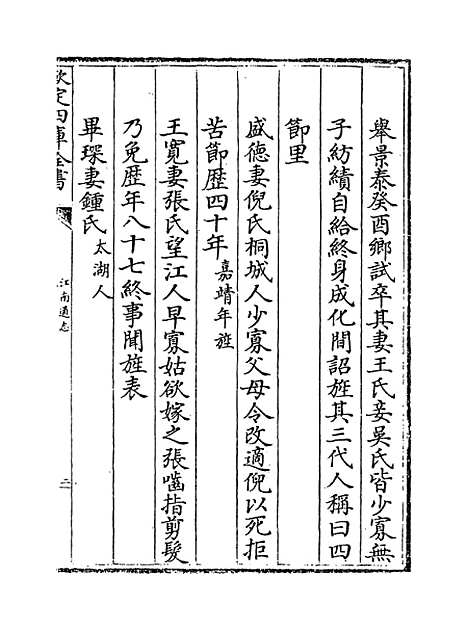 舉景泰癸酉鄉試卒其妻王氏妾吳氏皆少寡無
子紡績自給終身成化間詔旌其三代人稱曰四
節里
盛德妻倪氏桐城人少寡父母令改適倪以死拒
苦節歴四十年嘉靖年旌
王寛妻張氏望江人早寡姑欲嫁之張嚙指剪髮
乃免歴年八十七終事聞旌表
畢琛妻鍾氏太湖人
欽定四庫全書
江南通志
二